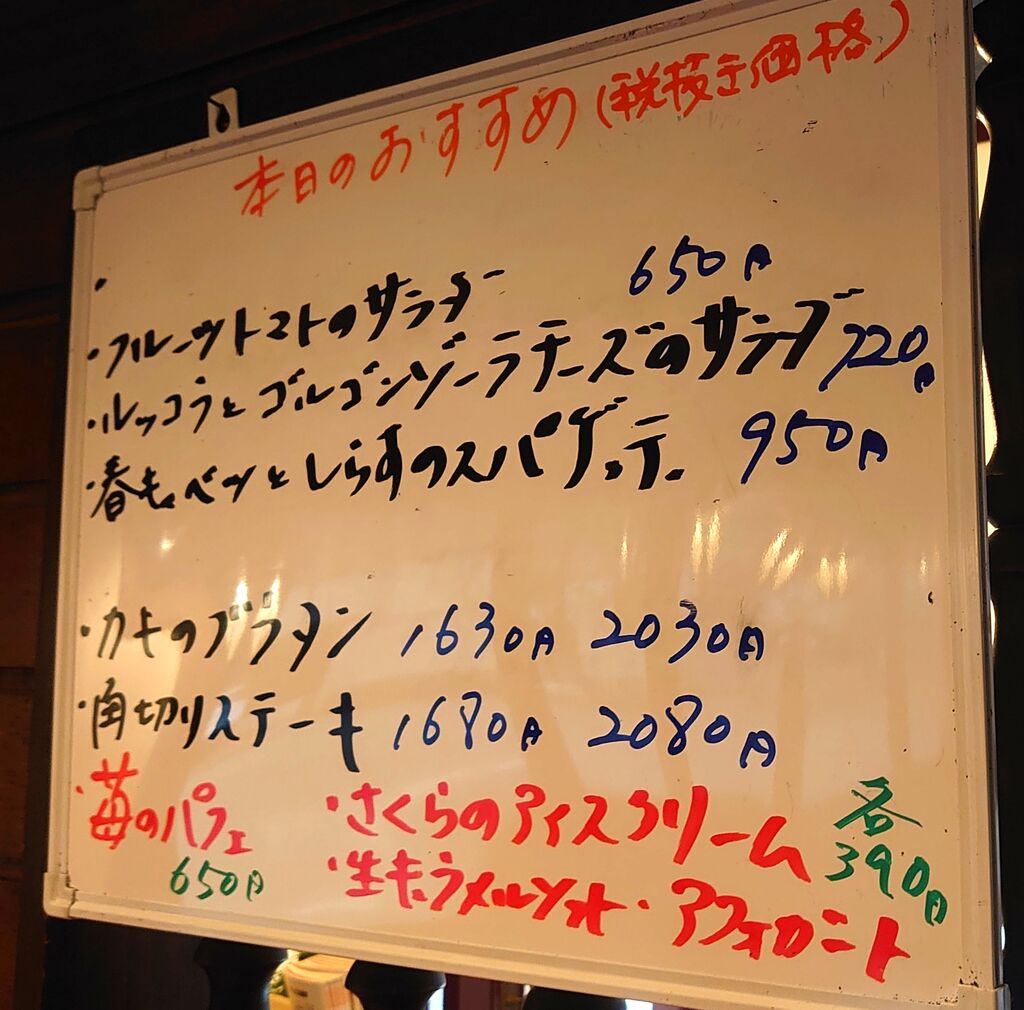 本日のおすすめ(税抜き価格)
・フルーツトマトのサラダー 650円
・ルッコラとゴルゴンゾーラチーズのサラダ 720円
・春キャベツとしらすのスパゲッティ 950円
・カキのグラタン 1630円 2030円
・角切りステーキ 1680円 2080円
・苺のパフェ 650円
・さくらのアイスクリーム 各390円
・生キャラメルソフト・アフォガート